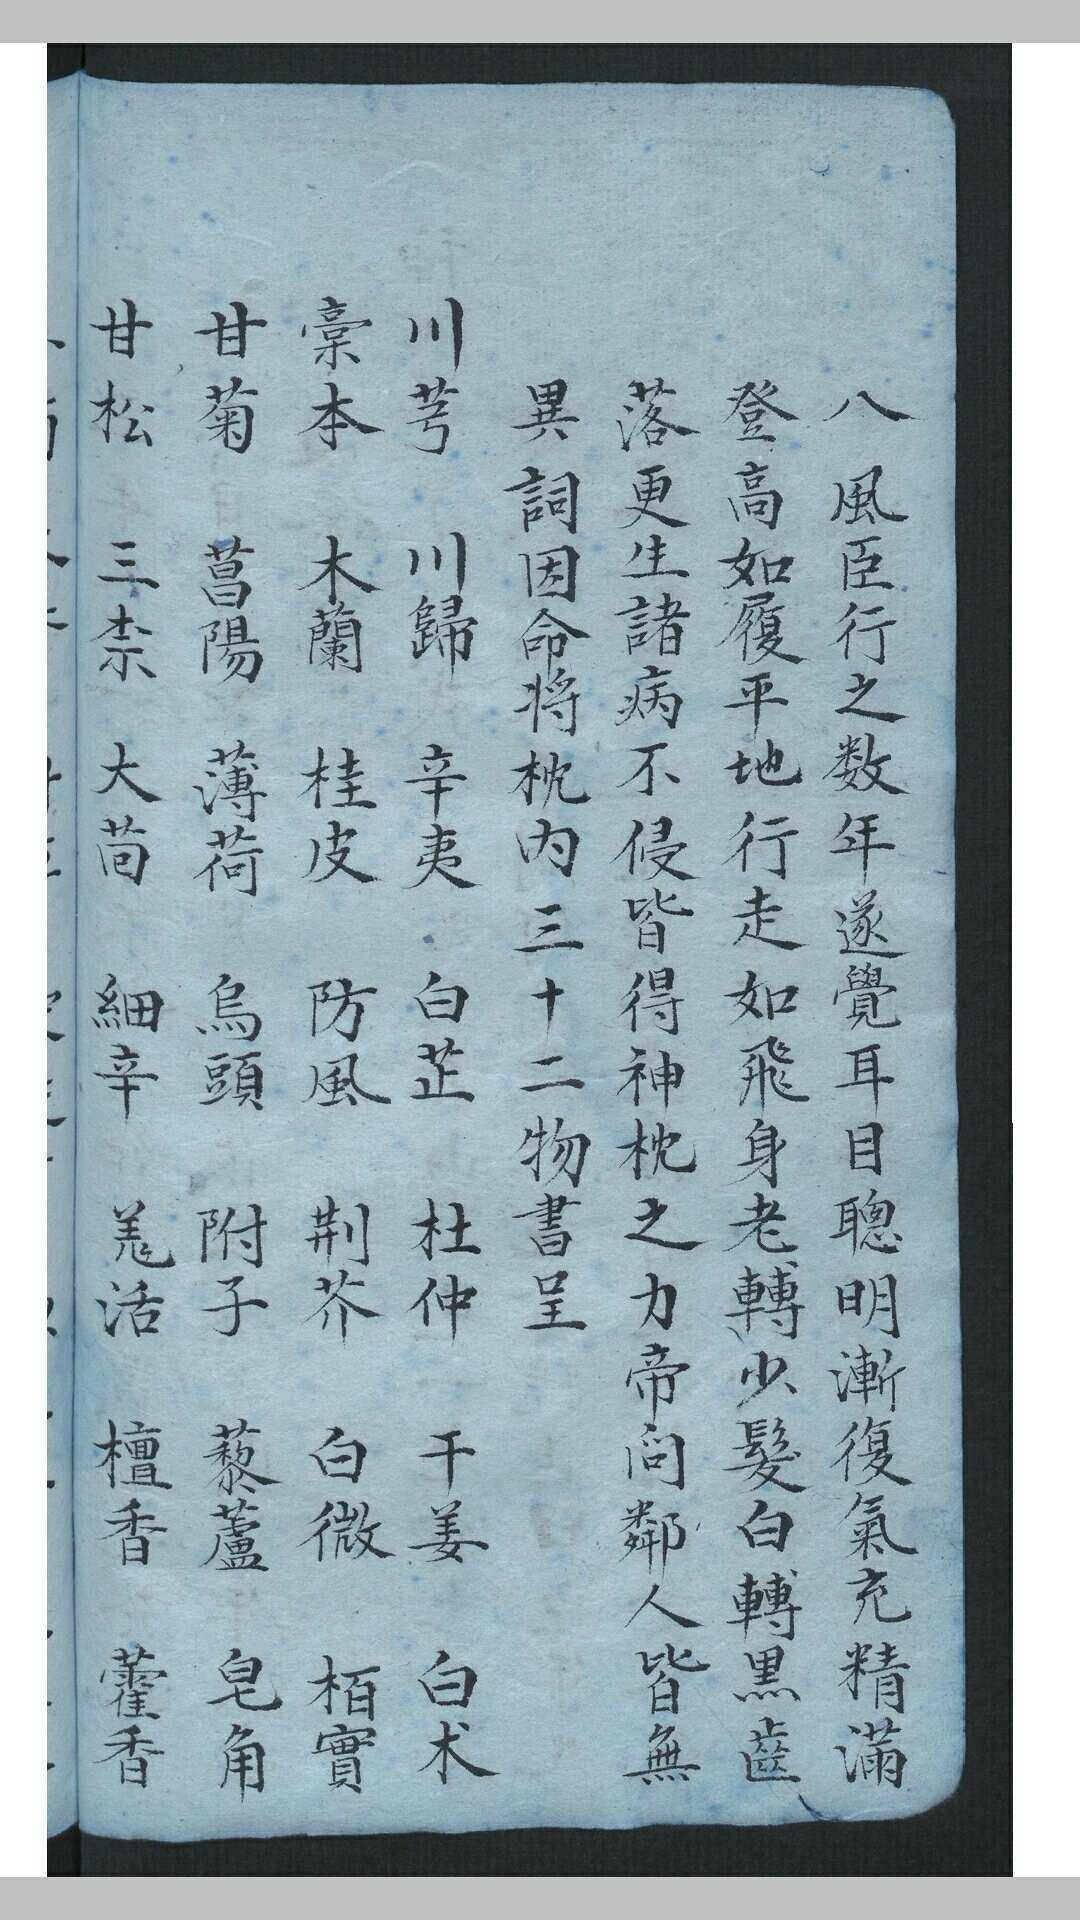 八風臣行之数年遂覺耳目聰明漸復氣充精滿
登高如履平地行走如飛身老轉少髮白轉黒齒
落更生諸病不侵皆得神枕之力帝问鄰人皆無
異詞因命将枕内三十二物書呈
川芎　川歸　辛夷　白芷　杜仲　干姜　白术
藁本　木蘭　桂皮　防風　荆芥　白微　栢實
甘菊　菖陽　薄荷　烏頭　附子　藜蘆　皂角
甘松　三柰　大茴　細辛　羗活　檀香　藿香